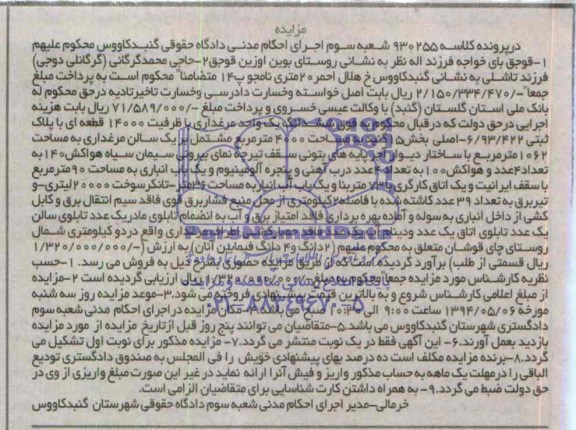 مزایده
درپرونده کلاسه ۹۳۰۲۵۵ شعبه سوم اجرای احکام مدنی دادگاه حقوقی گنبدکاووس محکوم علیهم
۱-قوجق بای خواجه فرزند اله نظر به نشانی روستای بوین اوزین قوجق۲-حاجی محمدگرگانی (گرگانلی دوجی)
فرزند تاشلی به نشانی گنبدکاووس خ هلال احمر ۲۰متری نامجو پ۱۴ متضامنا محکوم است به پرداخت مبلغ
جمعا ۲/۱۵۰/۳۳۴/۴۷۰/- ریال بابت اصل خواسته وخسارت دادرسی وخسارت تاخیرتادیه درحق محکوم له
بانک ملی استان گلستان (گنبد) با وکالت عیسی خسروی و پرداخت مبلغ ۷۱/۵۸۹/۰۰۰/- ریال بابت هزینه
اجرایی درحق دولت که درقبال محکوم به فوق ششدانگ یک واحد مرغداری با ظرفیت ۱۴۰۰۰ قطعه ای با پلاک
ثبتی ۶/۹۳/۴۲۲-اصلی بخش مساحت ۴۰۰۰ مترمربع مشتمل بر یک سالن مرغداری به مساحت
۱۰۶۲مترمربع با ساختار دیوار آجر پایه های بتونی سقف تیرچه نمای بیرونی سیمان سیاه هواکش۱۴۰ به
تعداد۴عدد و هواکش۱۰۰ به تعداد ۴عدد درب آهنی و پنجره آلومینیوم و یک باب انباری به مساحت ۹۰مترمربع
با سقف ایرانیت و یک اتاق کارگری ۱۲ متربنا و یک باب آب انبار به مساحت ۳۶متر-تانکرسوخت ۲۰۰۰۰لیتری-و
تیربرق به تعداد ۳۹ عدد کاشته شده با فاصله۲کیلومتری از محل منبع فشاربرق قوی فاقد سیم انتقال برق و کابل
کشی از داخل انباری به سوله و آماده بهره برداری فاقد امتیاز برق و آب به انضمام تابلوی مادریک عدد تابلوی سالن
یک عدد تابلوی اتاق یک عدد واقع دردو کیلومتری شمال
روستای چای قوشان متعلق به محکوم علیهم (۲دانگ و۴ دانگ فیمابین آنان) به ارزش (-/۱/۳۲۰/۰۰۰/۰۰۰
ریال قسمتی از طلب) برآورد گردیده است که از طریق مزایده حضوری بشرح ذیل به فروش می رسد. ۱-حسب
نظریه کارشناس مورد مزایده جمعا محکوم به مبلغ ریال ارزیابی گردیده است ۲-مزایده
از مبلغ اعلامی کارشناس شروع و به بالاترین قیمت پیشنهادی فروخته می شود.۳-موعد مزایده روز سه شنبه
مورخه ۱۳۹۴/۰۵/۰۶ ساعت ۹:۰۰ الی صبح می باشد.۴-مکان مزایده دراجرای احکام مدنی شعبه سوم
دادگستری شهرستان گنبدکاووس می باشد.۵-متقاضیان می توانند پنج روز قبل ازتاریخ مزایده از مورد مزایده
بازدید بعمل آورند.۶- این آگهی فقط در یک نوبت منتشر می گردد.۷- مزایده مذکور برای نوبت اول تشکیل می
گردد.۸-برنده مزایده مکلف است ده درصد بهای پیشنهادی خویش را فی المجلس به صندوق دادگستری تودیع
الباقی را درمهلت یک ماهه به حساب مذکور واریز و فیش آنرا ارائه نماید در غیر این صورت مبلغ واریزی از وی در
حق دولت ضبط می گردد.۹- به همراه داشتن کارت شناسایی برای متقاضیان الزامی است.
خرمالی-مدیر اجرای احکام مدنی شعبه سوم دادگاه حقوقی شهرستان گنبدکاووس